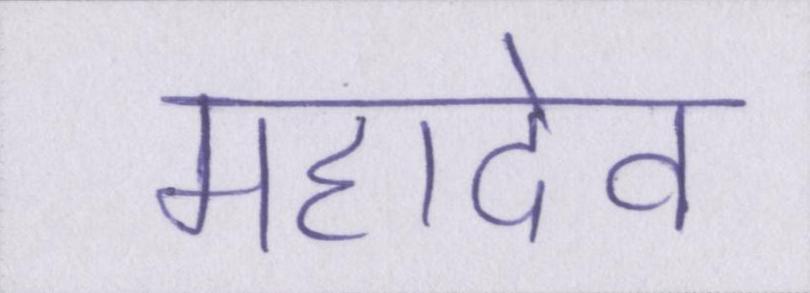 महादेव